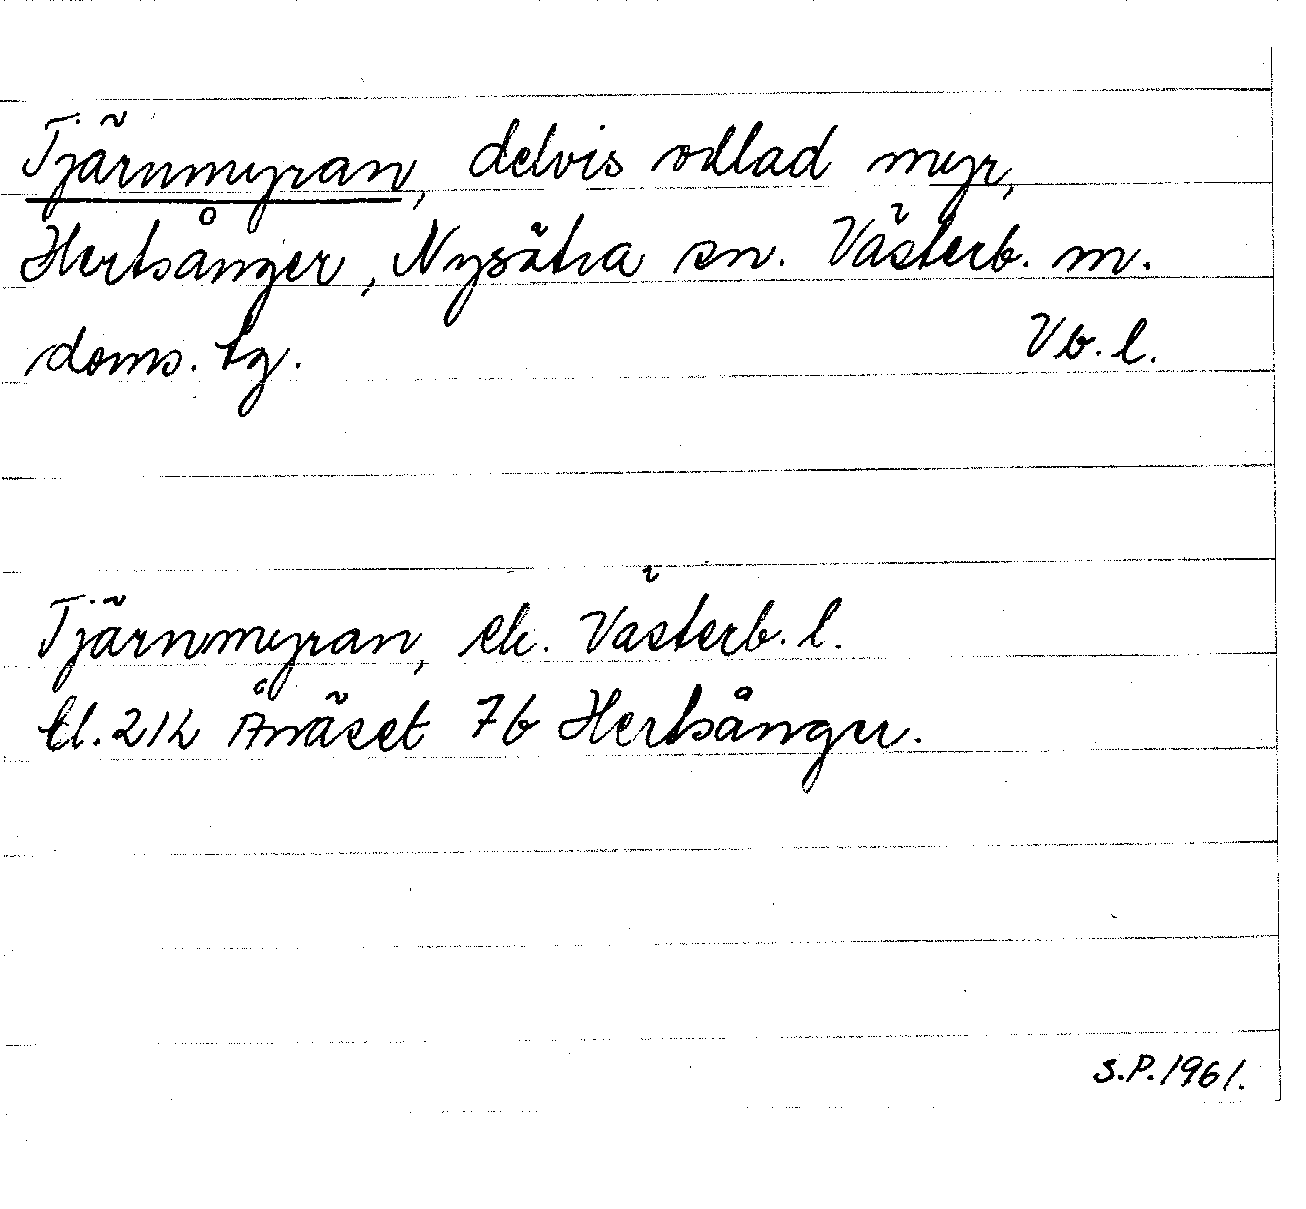 Tjärnmyran, delvis odlad myr,
Hertsånger, Nysätra sn. Västerb. m.
doms. tg. Vb. l.
Tjärnmyran, ek. Västerb. l.
bl. 21L Ånäset 7b Hertsånger.
S.P. 1961.